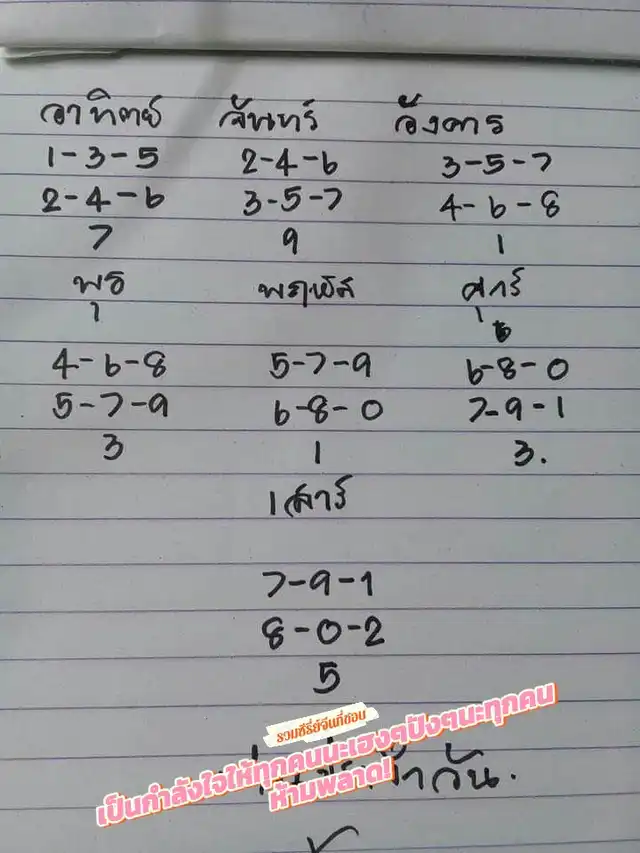 อาทิตย์ จันทร์ อังคาร
1-3-5 2-4-6 3-5-7
2-4-6 3-5-7 4-6-8
7 9 1
พุธ พฤหัส ศุกร์
4-6-8 5-7-9 6-8-0
5-7-9 6-8-0 7-9-1
3 1 3.
เสาร์
7-9-1
8-0-2
5
รวมซีรี่ย์จีนที่ชอบ
เป็นกำลังใจให้ทุกคนนะเฮงๆปังๆนะทุกคน
ห้ามพลาด!
วัน.